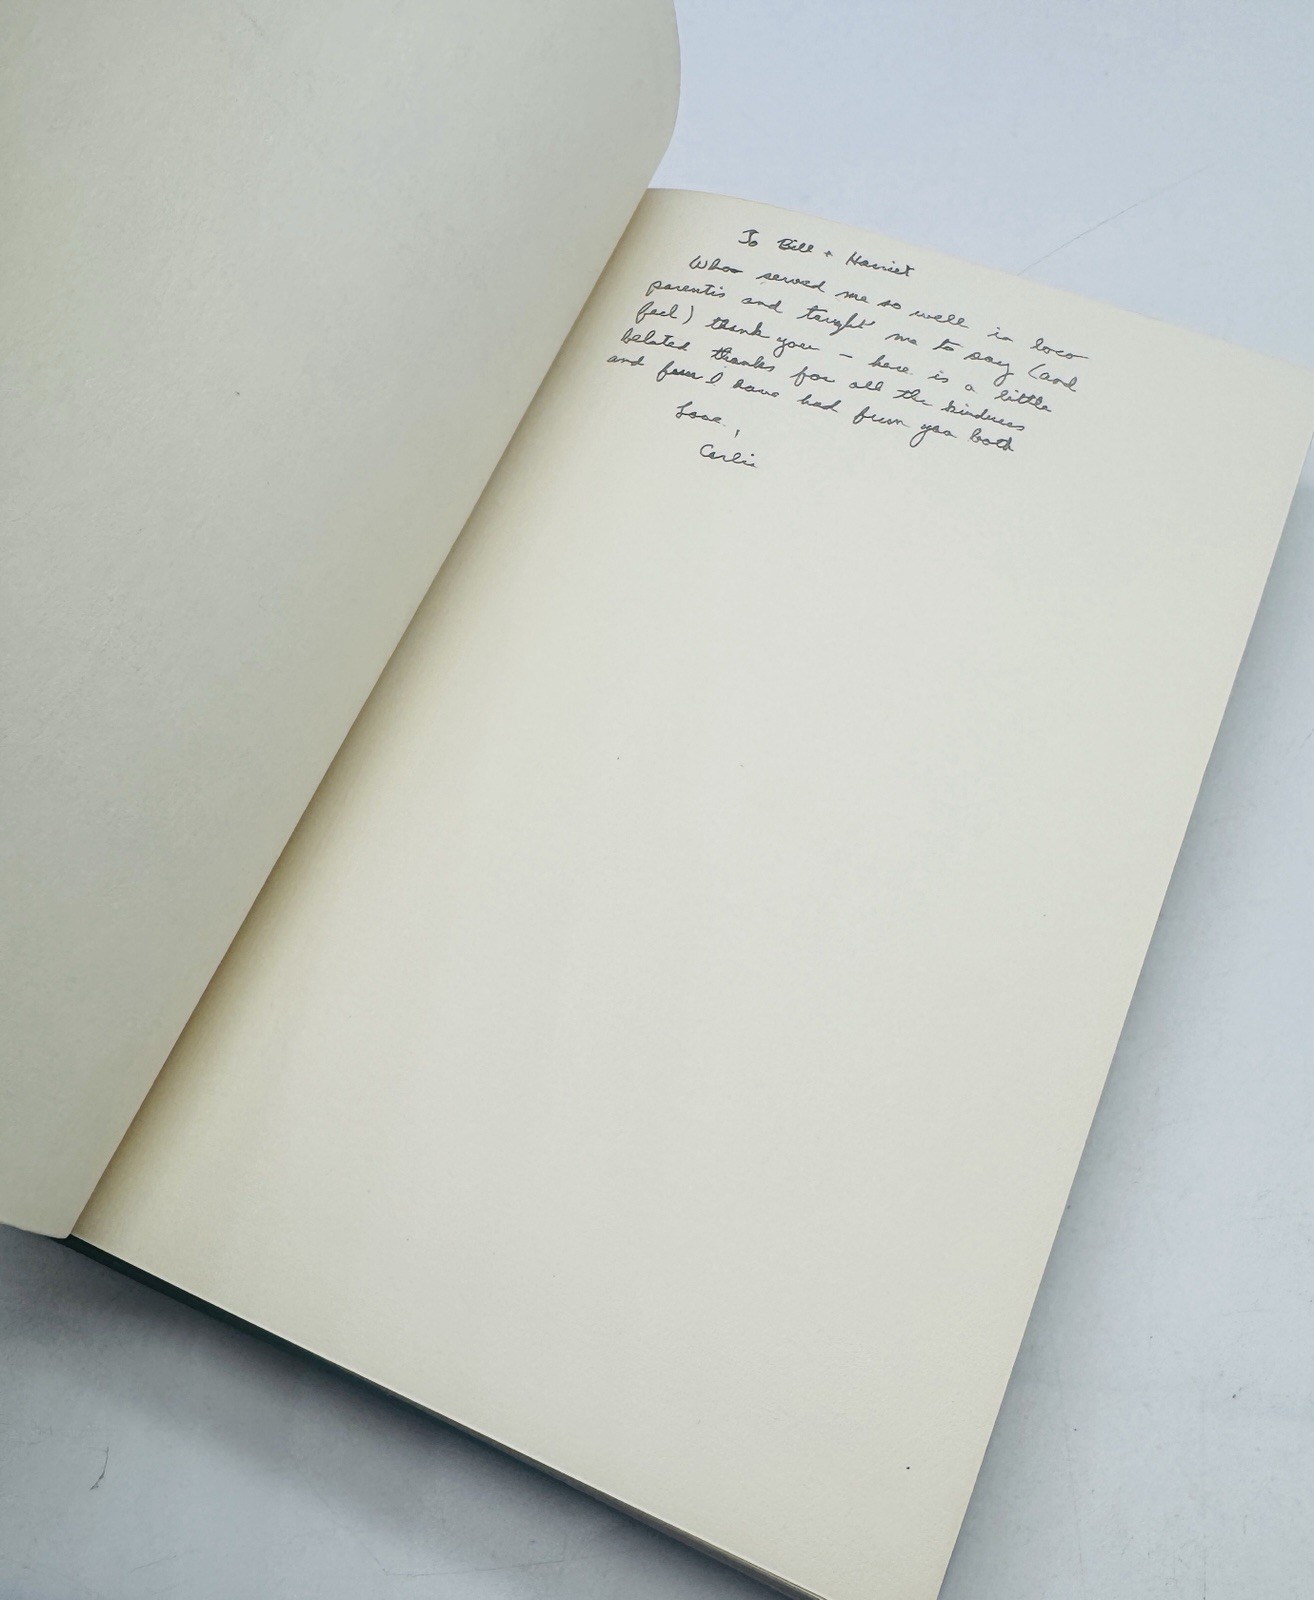 To Bill + Harriet
Who served me so well in loco
parentis and taught me to say (and
feel) thank you – here is a little
belated thanks for all the kindness
and fun I have had from you both
Love,